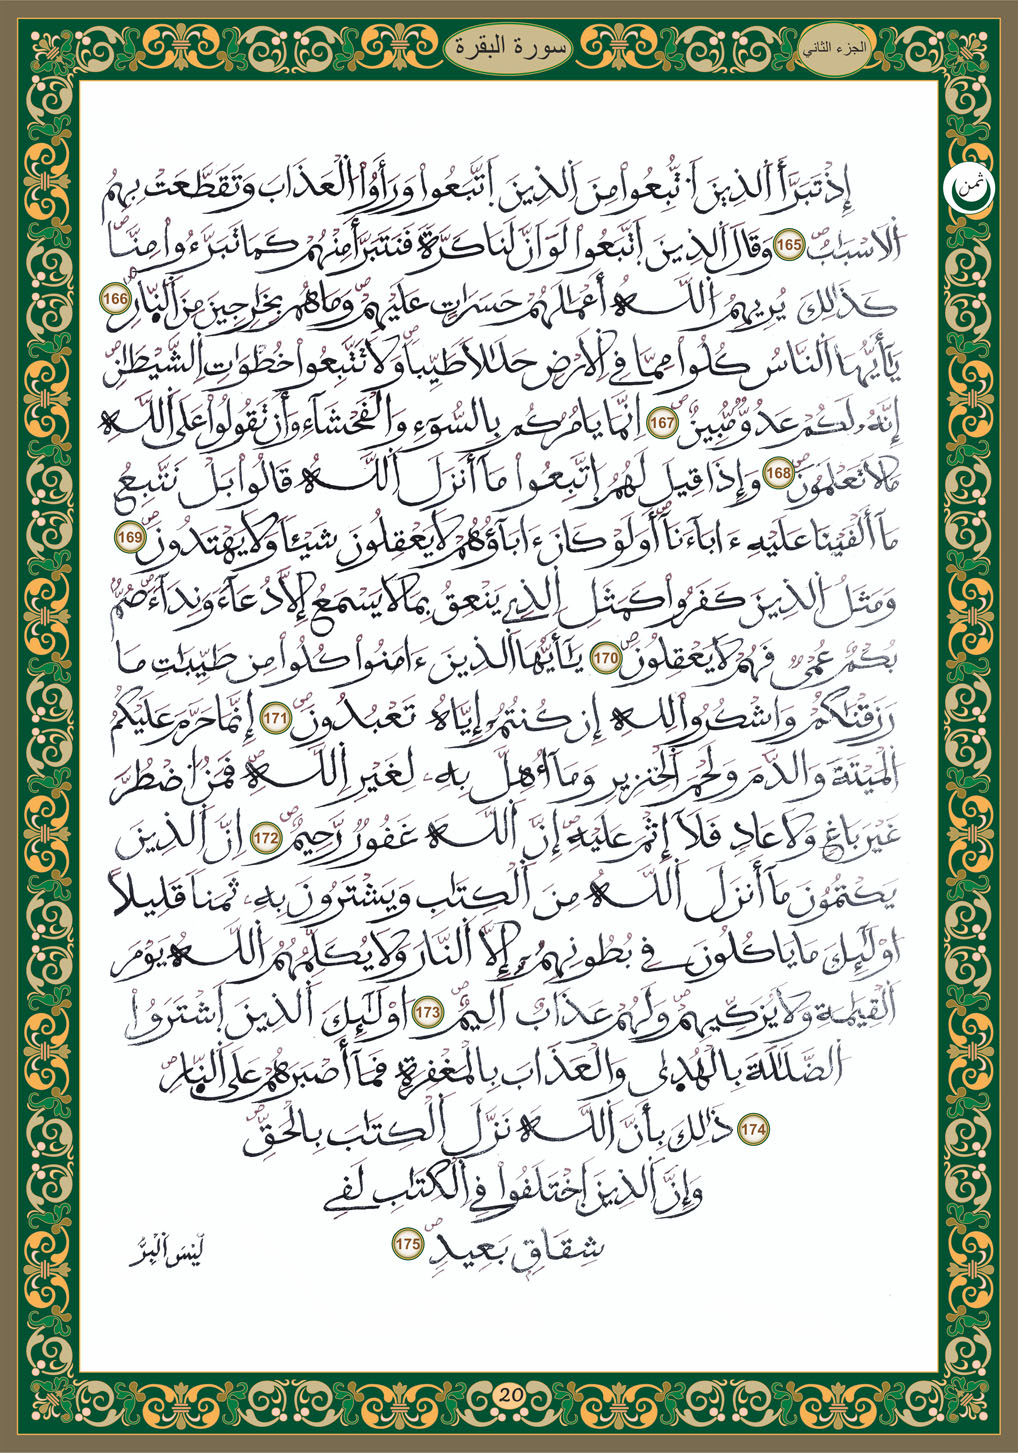 الجزء الثاني
سورة البقرة
ثمن
إِذْ تَبَرَّأَ اَلذِينَ اَ۟تُّبِعُواْ مِنَ اَلذِينَ اَ۪تَّبَعُواْ وَرَأَوُاْ اُ۬لْعَذَابَ وَتَقَطَّعَتْ بِهِمُ
اُ۬لَاسْبَٰبُۖ 165 وَقَالَ اَلذِينَ اَ۪تَّبَعُواْ لَوَ اَنَّ لَنَا كَرَّةٗ فَنَتَبَرَّأَ مِنْهُمْ كَمَا تَبَرَّءُواْ مِنَّاۖ
كَذَٰلِكَ يُرِيهِمُ اُ۬للَّهُ أَعْمَٰلَهُمْ حَسَرَٰتٍ عَلَيْهِمْۖ وَمَا هُم بِخَٰرِجِينَ مِنَ اَ۬لنّ۪ارِۖ 166
يَٰأَيُّهَا اَ۬لنَّاسُ كُلُواْ مِمَّا فِے اِ۬لَارْضِ حَلَٰلاٗ طَيِّباٗۖ وَلَا تَتَّبِعُواْ خُطْوَٰتِ اِ۬لشَّيْطَٰنِۖ
إِنَّهُۥ لَكُمْ عَدُوّٞ مُّبِينٌۖ 167 اِنَّمَا يَامُرُكُم بِالسُّوٓءِ وَالْفَحْشَآءِ وَأَن تَقُولُواْ عَلَى اَ۬للَّهِ
مَا لَا تَعْلَمُونَۖ 168 وَإِذَا قِيلَ لَهُمُ اُ۪تَّبِعُواْ مَآ أَنزَلَ اَ۬للَّهُ قَالُواْ بَلْ نَتَّبِعُ
مَآ أَلْفَيْنَا عَلَيْهِ ءَابَآءَنَآۖ أَوَلَوْ كَانَ ءَابَآؤُهُمْ لَا يَعْقِلُونَ شَيْـٔاٗ وَلَا يَهْتَدُونَۖ 169
وَمَثَلُ اُ۬لذِينَ كَفَرُواْ كَمَثَلِ اِ۬لذِے يَنْعِقُ بِمَا لَا يَسْمَعُ إِلَّا دُعَآءٗ وَنِدَآءٗۖ صُمُّۢ
بُكْمٌ عُمْيٞ فَهُمْ لَا يَعْقِلُونَۖ 170 يَٰأَيُّهَا اَ۬لذِينَ ءَامَنُواْ كُلُواْ مِن طَيِّبَٰتِ مَا
رَزَقْنَٰكُمْ وَاشْكُرُواْ لِلهِ إِن كُنتُمُۥٓ إِيَّاهُ تَعْبُدُونَۖ 171 إِنَّمَا حَرَّمَ عَلَيْكُمُ
اُ۬لْمَيْتَةَ وَالدَّمَ وَلَحْمَ اَ۬لْخِنزِيرِ وَمَآ أُهِلَّ بِهِۦ لِغَيْرِ اِ۬للَّهِۖ فَمَنُ اُ۟ضْطُرَّ
غَيْرَ بَاغٖ وَلَا عَادٖ فَلَآ إِثْمَ عَلَيْهِۖ إِنَّ اَ۬للَّهَ غَفُورٞ رَّحِيمٌۖ 172 اِنَّ اَ۬لذِينَ
يَكْتُمُونَ مَآ أَنزَلَ اَ۬للَّهُ مِنَ اَ۬لْكِتَٰبِ وَيَشْتَرُونَ بِهِۦ ثَمَناٗ قَلِيلاً
اُوْلَٰٓئِكَ مَا يَاكُلُونَ فِے بُطُونِهِمُۥٓ إِلَّا اَ۬لنَّارَ وَلَا يُكَلِّمُهُمُ اُ۬للَّهُ يَوْمَ
اَ۬لْقِيَٰمَةِ وَلَا يُزَكِّيهِمْۖ وَلَهُمْ عَذَابٌ اَلِيمٌۖ 173 اُوْلَٰٓئِكَ اَ۬لذِينَ اَ۪شْتَرَوُاْ
اُ۬لضَّلَٰلَةَ بِالْهُد۪ىٰ وَالْعَذَابَ بِالْمَغْفِرَةِۖ فَمَآ أَصْبَرَهُمْ عَلَى اَ۬لنّ۪ارِۖ
174 ذَٰلِكَ بِأَنَّ اَ۬للَّهَ نَزَّلَ اَ۬لْكِتَٰبَ بِالْحَقِّۖ
وَإِنَّ اَ۬لذِينَ اَ۪خْتَلَفُواْ فِے اِ۬لْكِتَٰبِ لَفِے
شِقَاقِۢ بَعِيدٖۖ 175
لَّيْسَ اَ۬لْبِرُّ
20